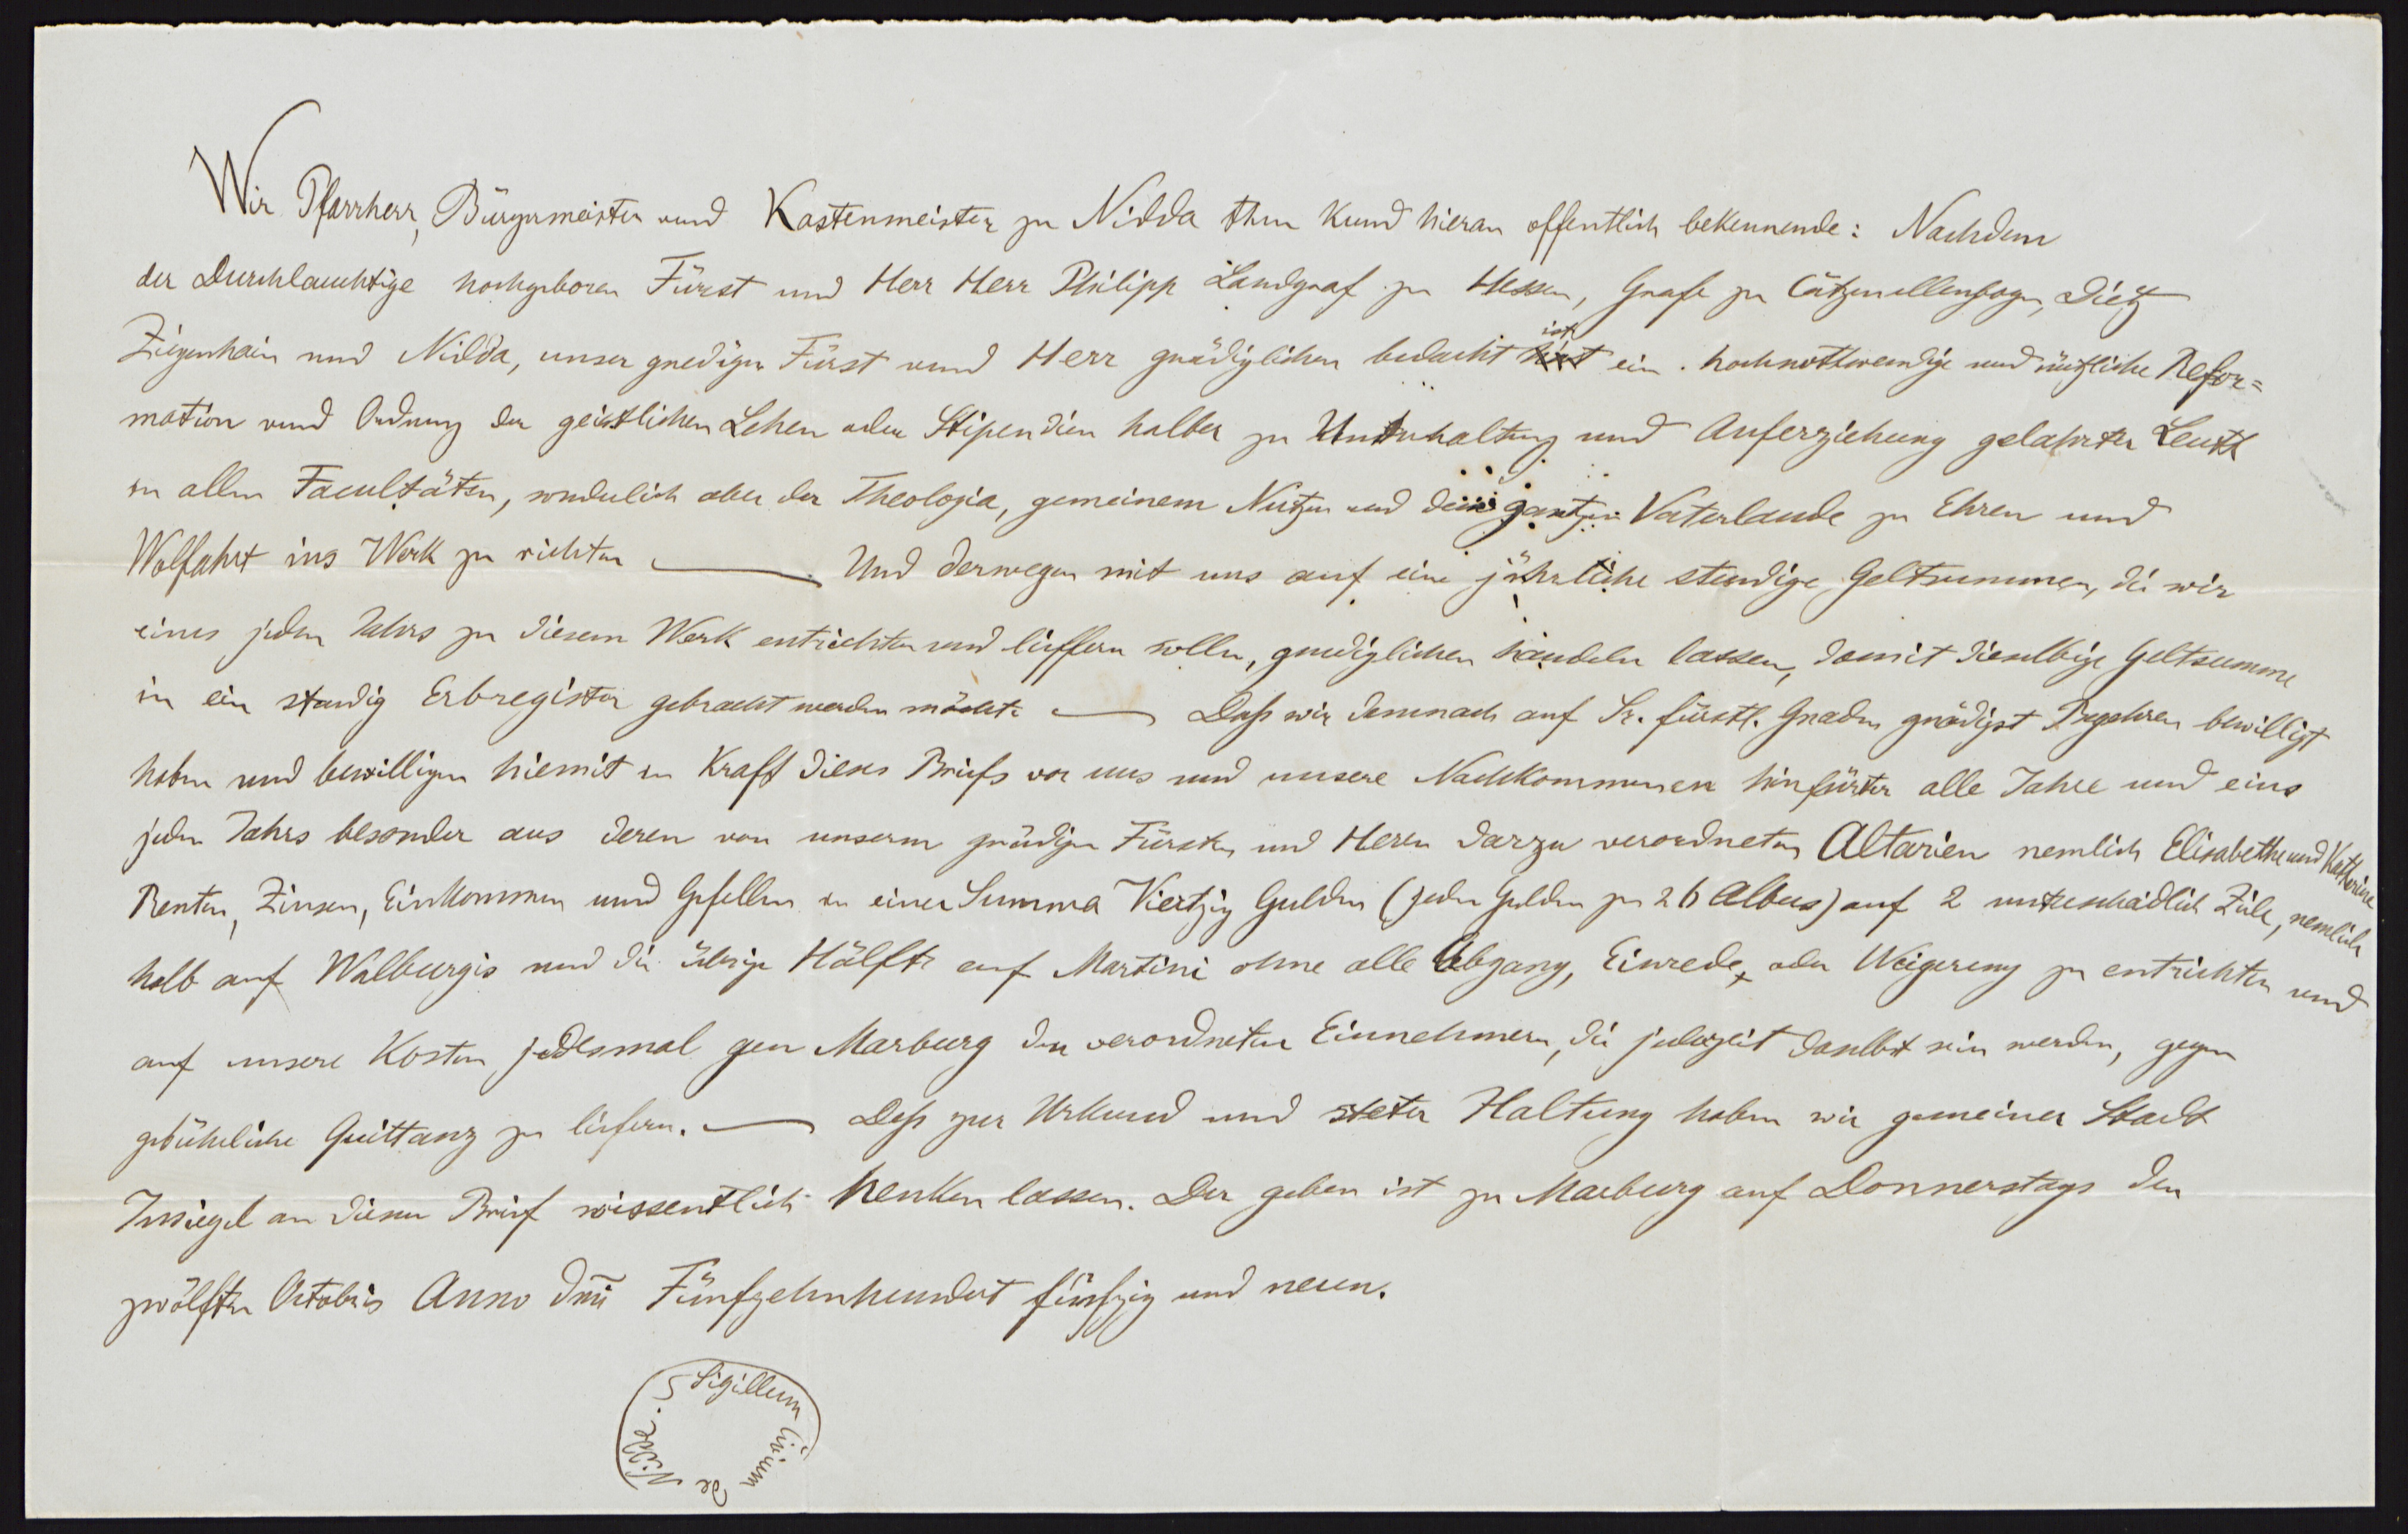 Wir Pfarrherr, Bürgermeister und Kastenmeister zu Nidda thun kund hieran offentlich bekennende: Nachdem
der Durchlauchtige hochgeboren Fürst und Herr Herr Philipp Landgraf zu Hessen, Grafe zu Catzenellenbogen, Dietz
Ziegenhain und Nidda, unser gnediger Fürst und Herr gnädiglichen bedacht ist ein hochnottwendige und nützliche Refor=
mation und Ordnung der geistlichen Lehen oder Stipendien halber zu Unterhaltung und Auferziehung gelahrter Leutt
in allen Facultäten, sonderlich aber der Theologia, gemeinem Nutzen und dem gantzen Vaterlande zu Ehren und
Wolfahrt ins Werk zu richten — Und derwegen mit uns auf eine jährliche stendige Geltsummen, die wir
eines jeden Jahrs zu diesem Werk entrichten und lieffern sollen, gnediglichen handeln lassen, damit dieselbige Geltsumme
in ein standig Erbregister gebracht werden möchte — Daß wir demnach auf Sr. fürstl. Gnaden gnädigst Begehren bewilligt
haben und bewilligen hiemit in Kraft dieses Briefs vor uns und unsere Nachkommenen hinfürter alle Jahre und eins
jeden Jahrs besonder aus deren von unserm gnädigen Fürsten und Herrn darzu verordneten Altarien nemlich Elisabethe und Katharine
Renten, Zinsen, Einkommen und Gefellen in einer Summa Viertzig Gulden (jeden Gulden zu 26 Albus) auf 2 unterschiedlich Ziele, nemlich
halb auf Walburgis und die übrige Hälfte auf Martini ohne alle Abgang, Einrede, oder Weigerung zu entrichten und
auf unsere Kosten jedesmal gen Marburg den verordneten Einnehmern, die jederzeit daselbst sein werden, gegen
gebührliche Quittanz zu liefern. — Deß zur Urkund und steter Haltung haben wir gemeiner Stadt
Insiegel an diesen Brief wissentlich henken lassen. Der geben ist zu Marburg auf Donnerstags den
zwölften Octobris Anno Dni Fünfzehnhundert fünfzig und neun.
S Sigillum Civium de Nidde.